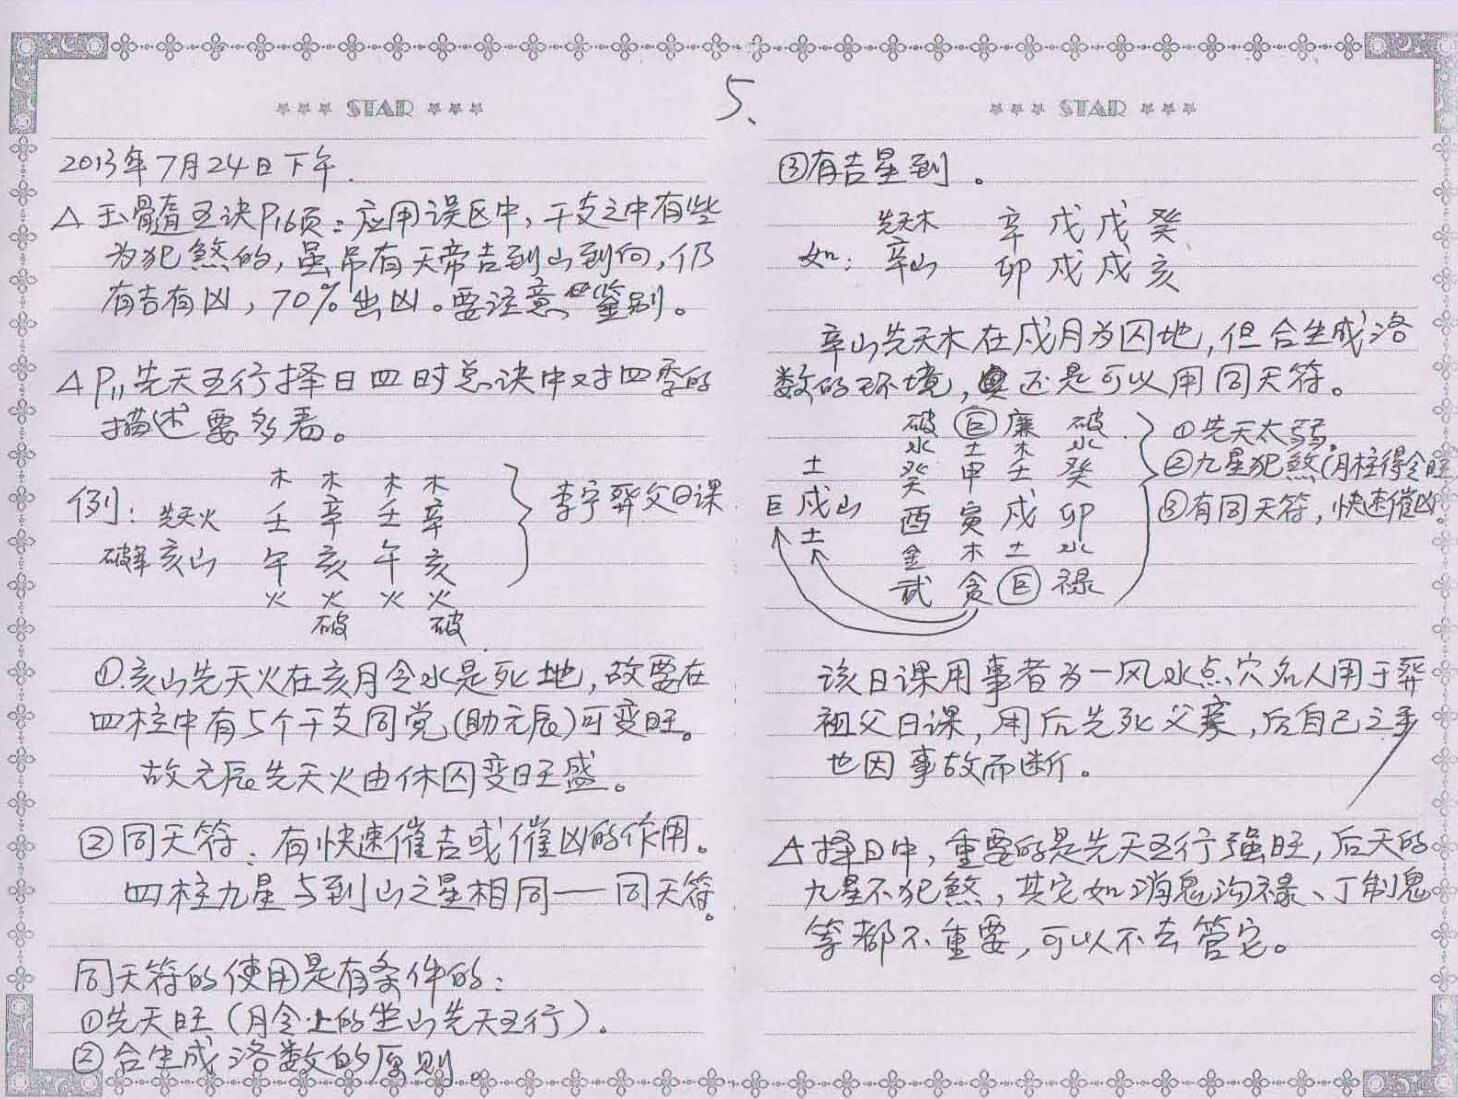 5、
*** STAR ***
2013年7月24日下午.
△玉髓五诀P16页：应用误区中，干支之中有些
为犯煞的，虽吊有天帝吉到山到向，仍
有吉有凶，70%出凶。要注意鉴别。
△P11先天五行择日四时总诀中对四季的
描述要多看。
木 木 木 木
例：先天火 壬 辛 壬 辛 李宇葬父日课
破军亥山 午 亥 午 亥
火 火 火 火
破 破
①.亥山先天火在亥月令水是死地，故要在
四柱中有5个干支同党(助元辰)可变旺。
故元辰先天火由休囚变旺盛。
②同天符：有快速催吉或催凶的作用。
四柱九星与到山之星相同——同天符。
同天符的使用是有条件的：
①先天旺（月令上的坐山先天五行）。
②合生成洛数的原则。
*** STAR ***
③有吉星到。
先天木 辛 戊 戊 癸
如：辛山 卯 戌 戌 亥
辛山先天木在戌月为囚地，但合生成洛
数的环境，还是可以用同天符。
破 巨 廉 破 ①先天太弱.
水 土 木 水
土 癸 甲 壬 癸 ②九星犯煞(月柱得令旺
巨 戌山 酉 寅 戌 卯 ③有同天符，快速催凶
土 金 木 土 水
武 贪 巨 禄
该日课用事者为一风水点穴名人用于葬
祖父日课，用后先死父亲，后自己之手
也因事故而断。
△择日中，重要的是先天五行强旺，后天的
九星不犯煞，其它如消鬼沟禄、丁制鬼
等都不重要，可以不去管它。